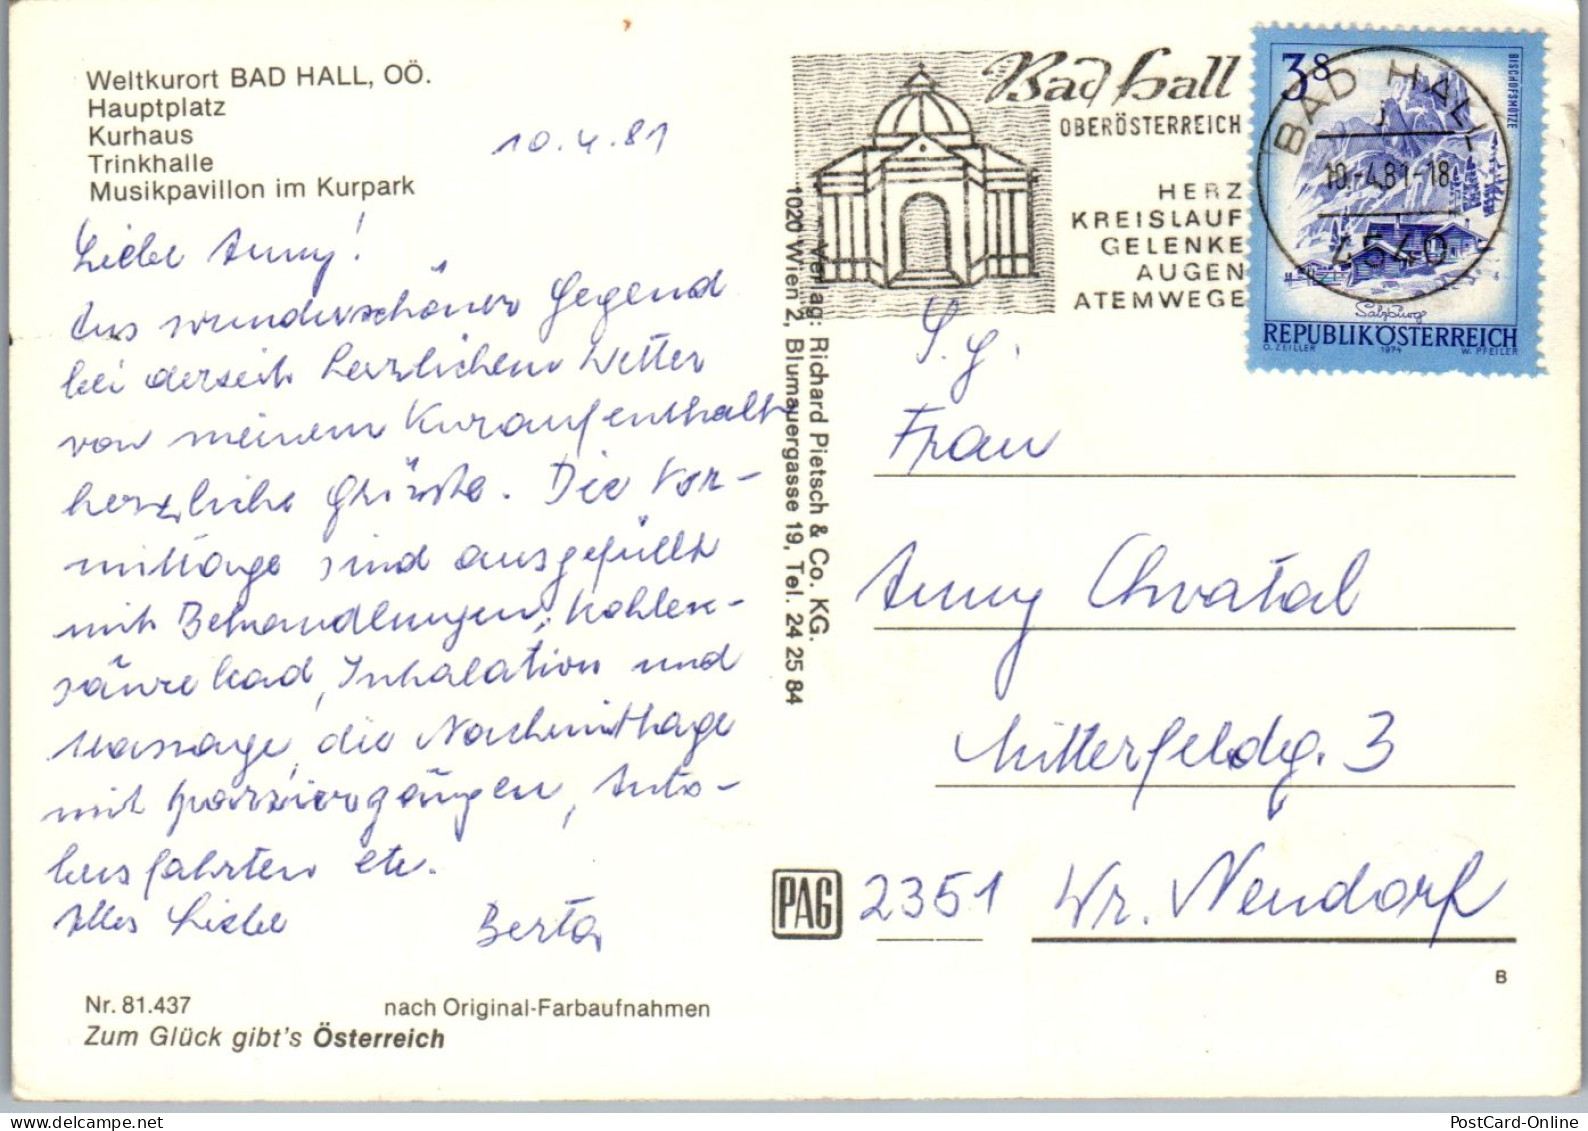 Weltkurort BAD HALL, OÖ.
Hauptplatz
Kurhaus
Trinkhalle
Musikpavillon im Kurpark
10.4.81
Liebe Anny!
Aus wunderschöner Gegend
bei derzeit herrlichem Wetter
von meinem Kuraufenthalt
herzliche Grüsse. Die Vor-
mittage sind ausgefüllt
mit Behandlungen, Kohlen-
säurebad, Inhalation und
Massage, die Nachmittage
mit Spaziergängen, Auto-
busfahrten etc.
Alles Liebe Berta
Nr. 81.437 nach Original-Farbaufnahmen
Zum Glück gibt's Österreich
Verlag: Richard Pietsch & Co. KG.
1020 Wien 2, Blumauergasse 19, Tel. 24 25 84
Bad Hall
OBERÖSTERREICH
HERZ
KREISLAUF
GELENKE
AUGEN
ATEMWEGE
3S
BISCHOFSMÜTZE
BAD HALL
10.-4.81-18
4540
Salzburg
REPUBLIK ÖSTERREICH
O. ZEILLER 1974 W. PFEILER
S. g.
Frau
Anny Chvatal
Mitterfeldg. 3
PAG
2351 Wr. Neudorf
B
PostCard-Online